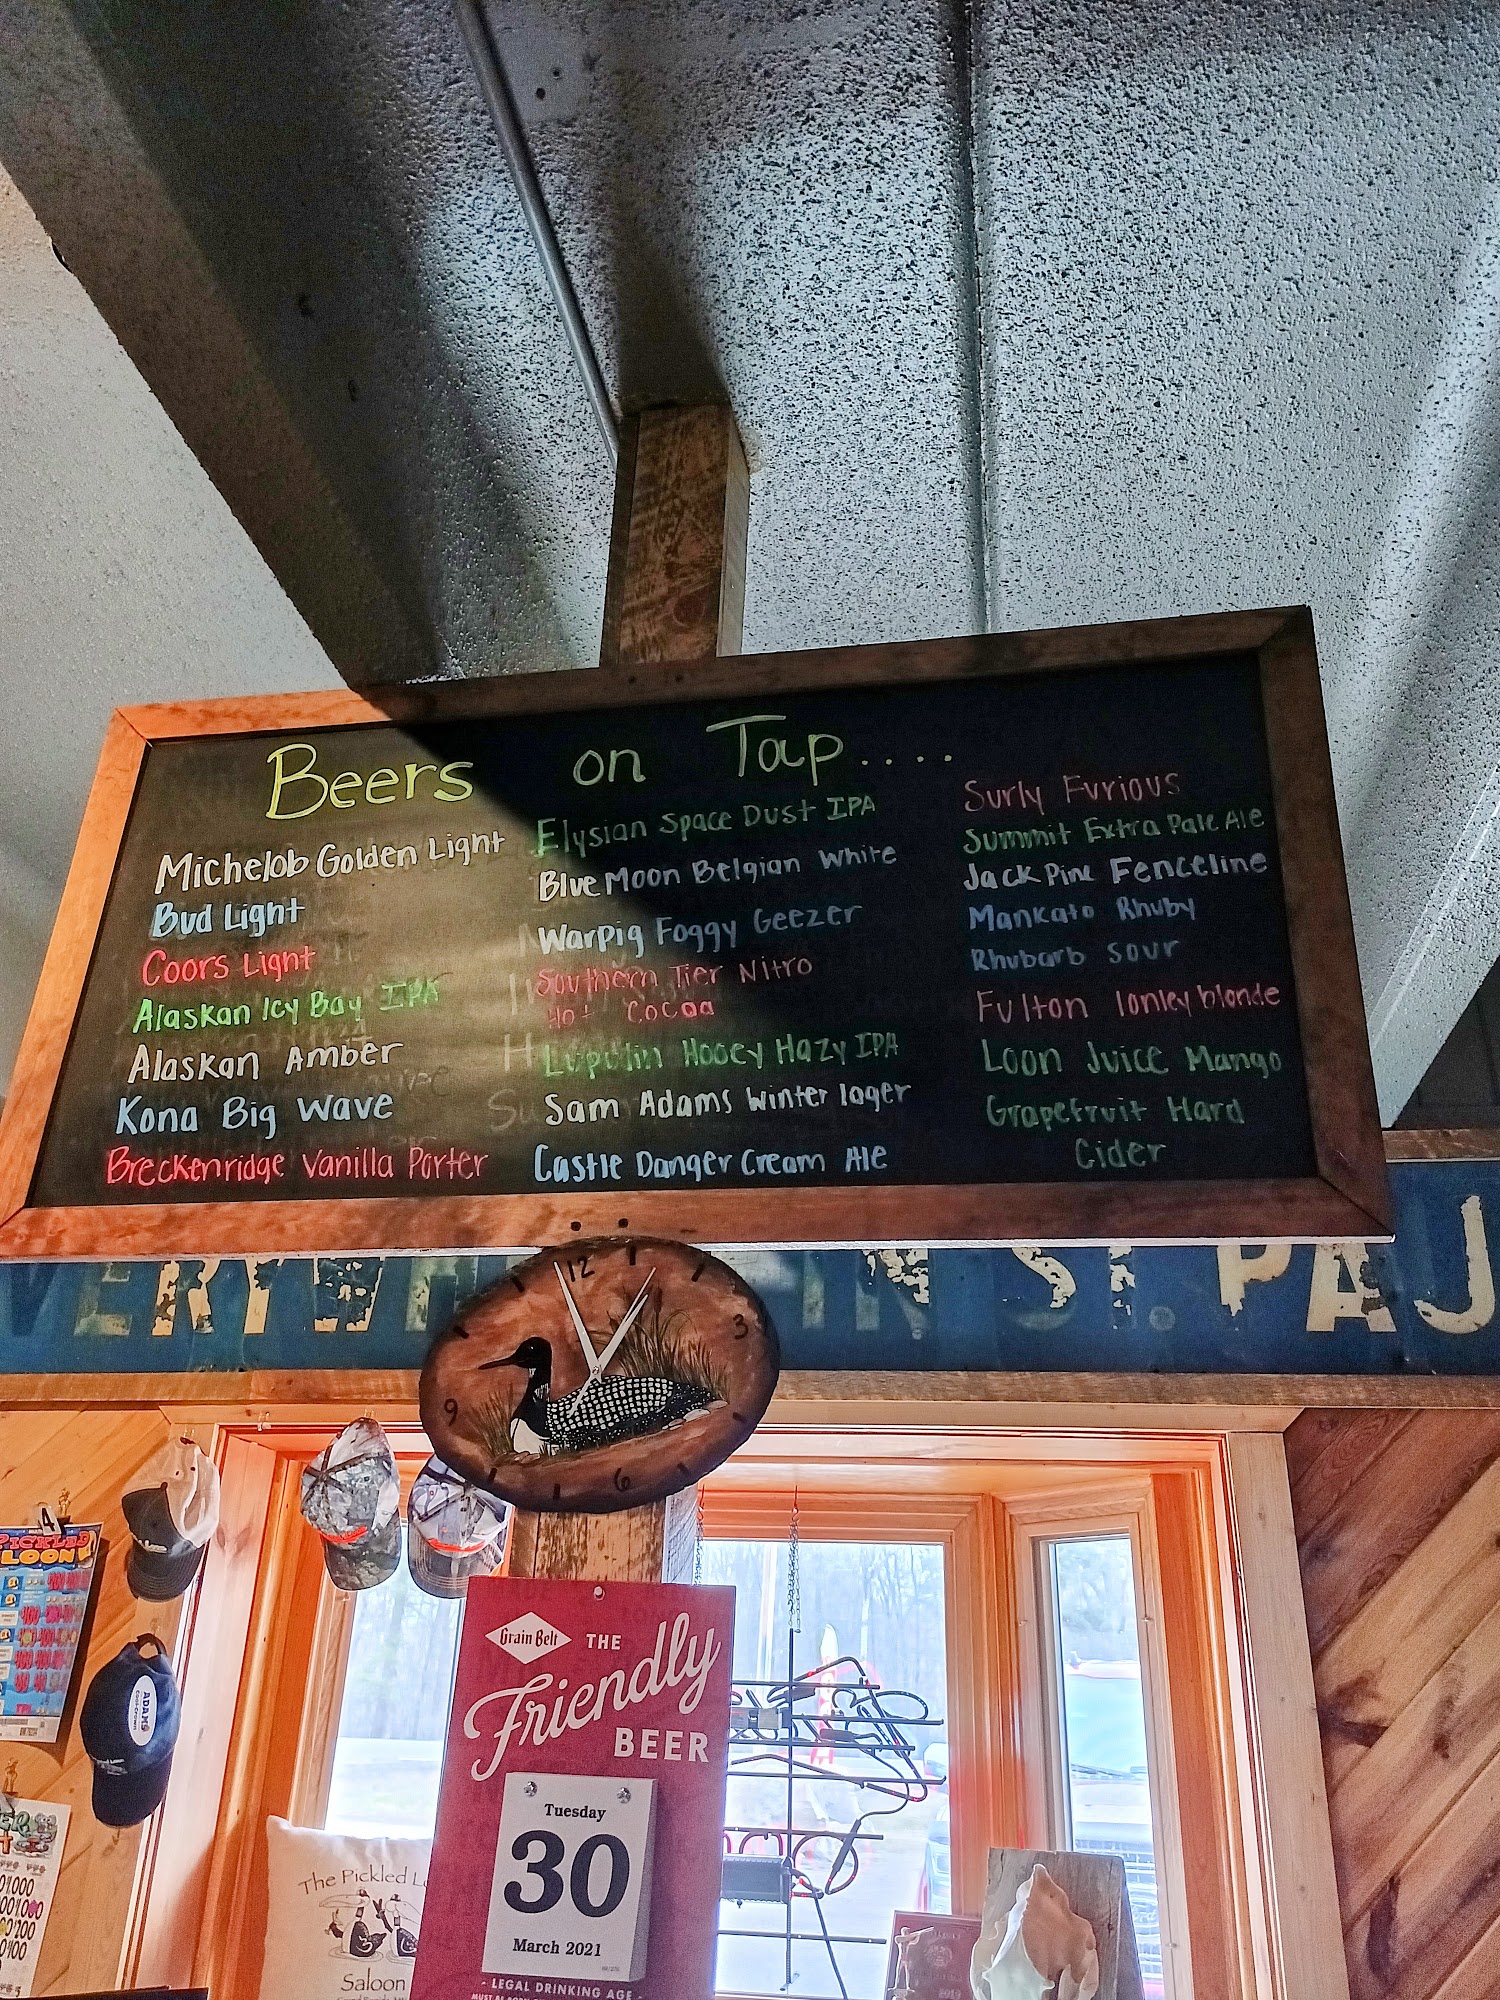 Beers on Tap....
Michelob Golden Light
Bud Light
Coors Light
Alaskan Icy Bay IPA
Alaskan Amber
Kona Big Wave
Breckenridge Vanilla Porter
Elysian Space Dust IPA
Blue Moon Belgian White
Warpig Foggy Geezer
Southern Tier Nitro
Hot Cocoa
Lupulin Hooey Hazy IPA
Sam Adams Winter lager
Castle Danger Cream Ale
Surly Furious
Summit Extra Pale Ale
Jack Pine Fenceline
Mankato Rhuby
Rhubarb Sour
Fulton lonley blonde
Loon Juice Mango
Grapefruit Hard
Cider
IN ST. PAU
12
3
9
6
4
PICKLED
LOON
ADAMS
Grain Belt THE
Friendly
BEER
Tuesday
30
March 2021
- LEGAL DRINKING AGE -
The Pickled
Saloon